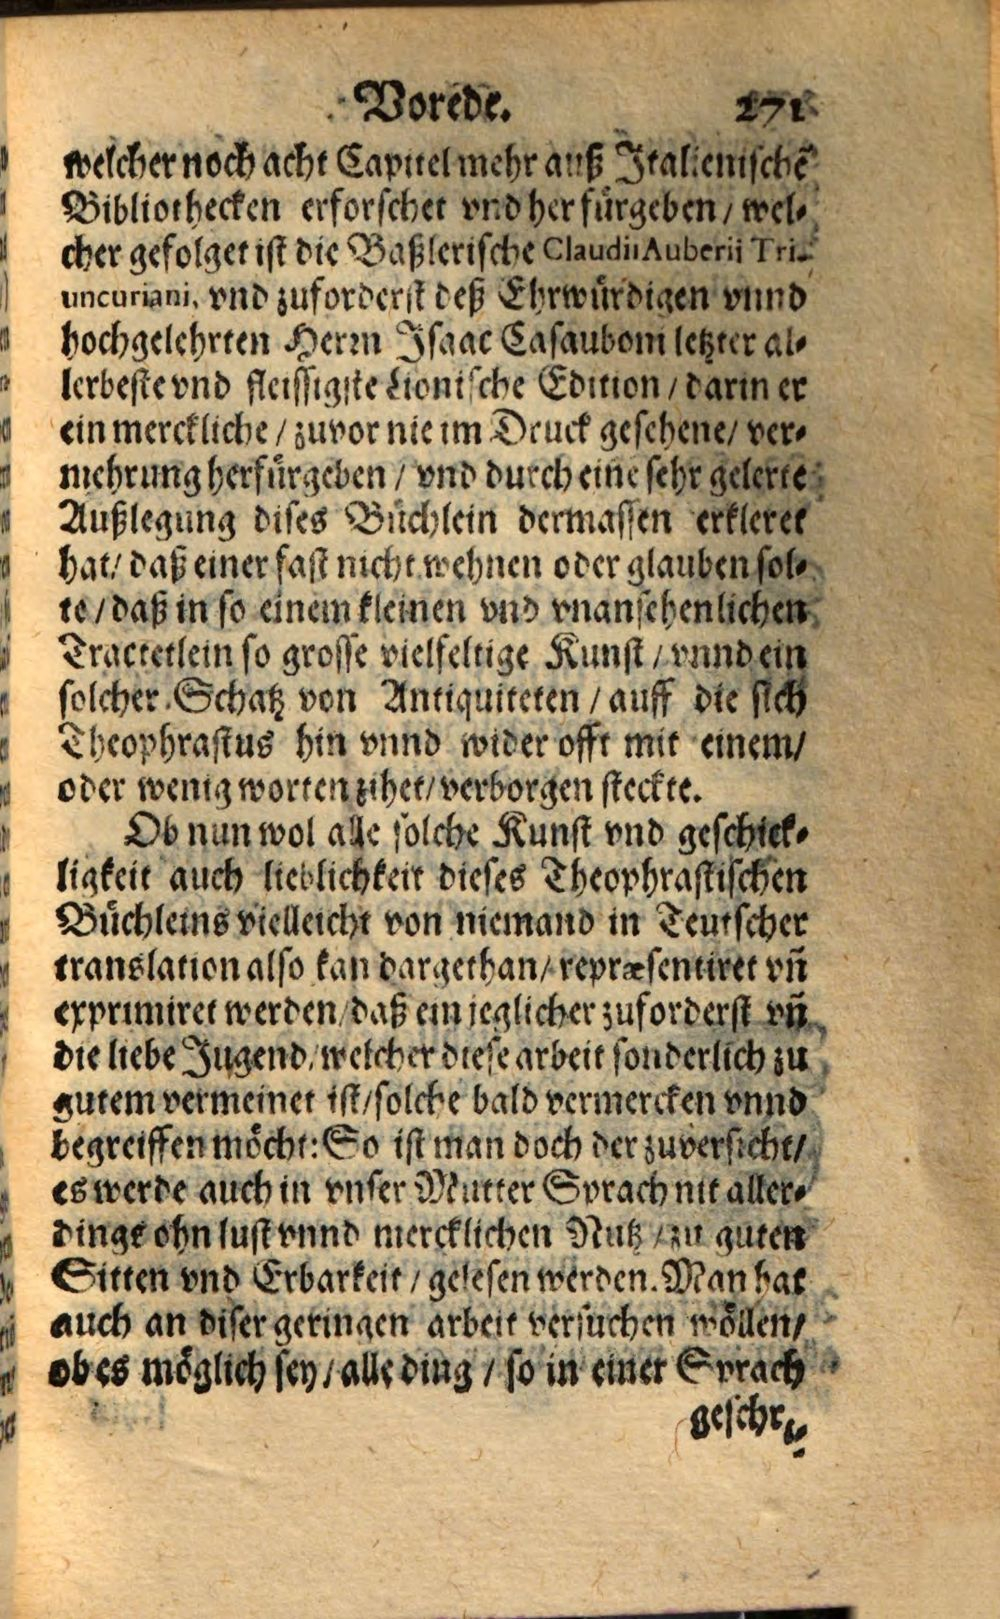 Vorede. 271
welcher noch acht Capitel mehr auß Italienischē
Bibliothecken erforschet vnd her fürgeben / wel-
cher gefolget ist die Baßlerische Claudii Auberii Tri-
uncuriani, vnd zuforderst deß Ehrwürdigen vnnd
hochgelehrten Herrn Isaac Casauboni letzter al-
lerbeste vnd fleissigste Lionische Edition / darin er
ein merckliche / zuvor nie im Druck gesehene / ver-
mehrung herfürgeben / vnd durch eine sehr gelerte
Außlegung dises Büchlein dermassen erkleret
hat / daß einer fast nicht wehnen oder glauben sol-
te / daß in so einem kleinen vnd vnansehenlichen
Tractetlein so grosse vielfeltige Kunst / vnnd ein
solcher Schatz von Antiquiteten / auff die sich
Theophrastus hin vnnd wider offt mit einem /
oder wenig worten zihet / verborgen steckte.
Ob nun wol alle solche Kunst vnd geschick-
ligkeit auch lieblichkeit dieses Theophrastischen
Büchleins vielleicht von niemand in Teutscher
translation also kan dargethan / repræsentiret vñ
exprimiret werden / daß ein jeglicher zuforderst vñ
die liebe Jugend / welcher diese arbeit sonderlich zu
gutem vermeinet ist / solche bald vermercken vnnd
begreiffen möcht: So ist man doch der zuversicht /
es werde auch in vnser Mutter Sprach nit aller-
dings ohn lust vnnd mercklichen Nutz / zu guten
Sitten vnd Erbarkeit / gelesen werden. Man hat
auch an diser geringen arbeit versuchen wöllen /
ob es möglich sey / alle ding / so in einer Sprach
geschri-